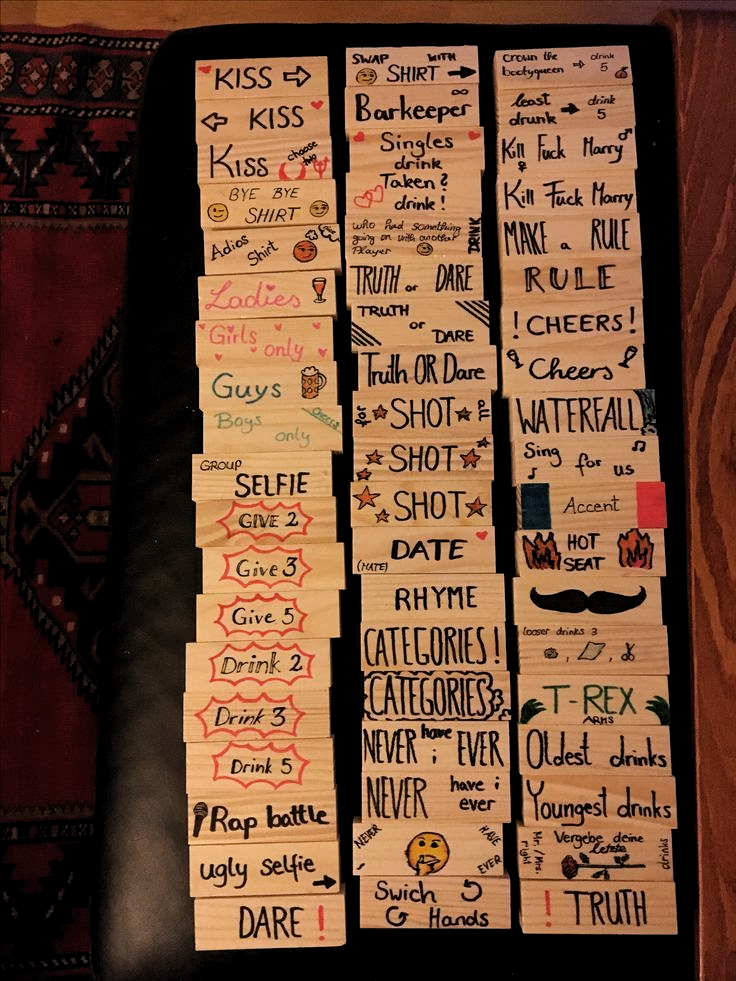 KISS
KISS
Kiss choose two
BYE BYE
SHIRT
Adios
Shirt
Ladies
Girls
only
Guys
Boys
only
Cheers
GROUP
SELFIE
GIVE 2
Give 3
Give 5
Drink 2
Drink 3
Drink 5
Rap battle
ugly selfie
DARE !
SWAP WITH
SHIRT
Barkeeper ∞
Singles
drink
Taken?
drink!
who had something
going on with another
Player
DRINK
TRUTH or DARE
TRUTH
or
DARE
Truth OR Dare
for SHOT all
SHOT
SHOT
DATE
(MATE)
RHYME
CATEGORIES!
CATEGORIES
NEVER have i EVER
NEVER have i
ever
NEVER HAVE
I EVER
Swich
Hands
crown the
bootyqueen
drink
5
least
drunk
drink
5
Kill Fuck Marry
Kill Fuck Marry
MAKE a RULE
RULE
! CHEERS !
Cheers
WATERFALL
Sing
for us
Accent
HOT
SEAT
looser drinks 3
T-REX
ARMS
Oldest drinks
Youngest drinks
Mr. / Mrs.
right
Vergebe deine
letzte
drinks
! TRUTH